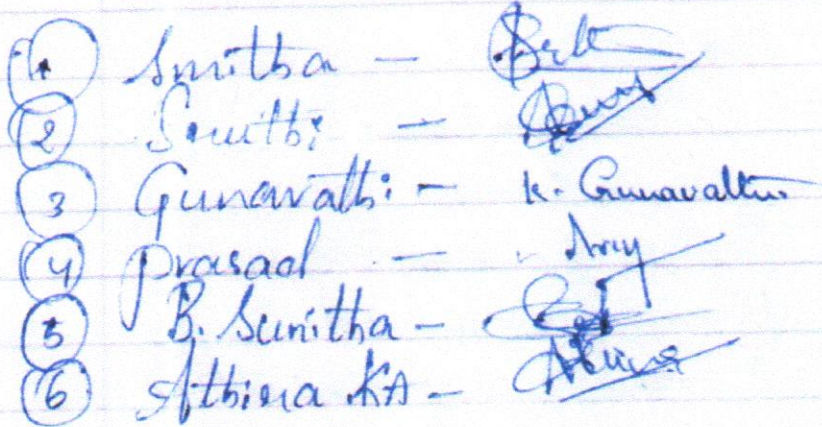 1 Smitha -
2 Sruthi -
3 Gunavathi - K. Gunavathi
4 prasad -
5 B. Sunitha -
6 Athira KA -